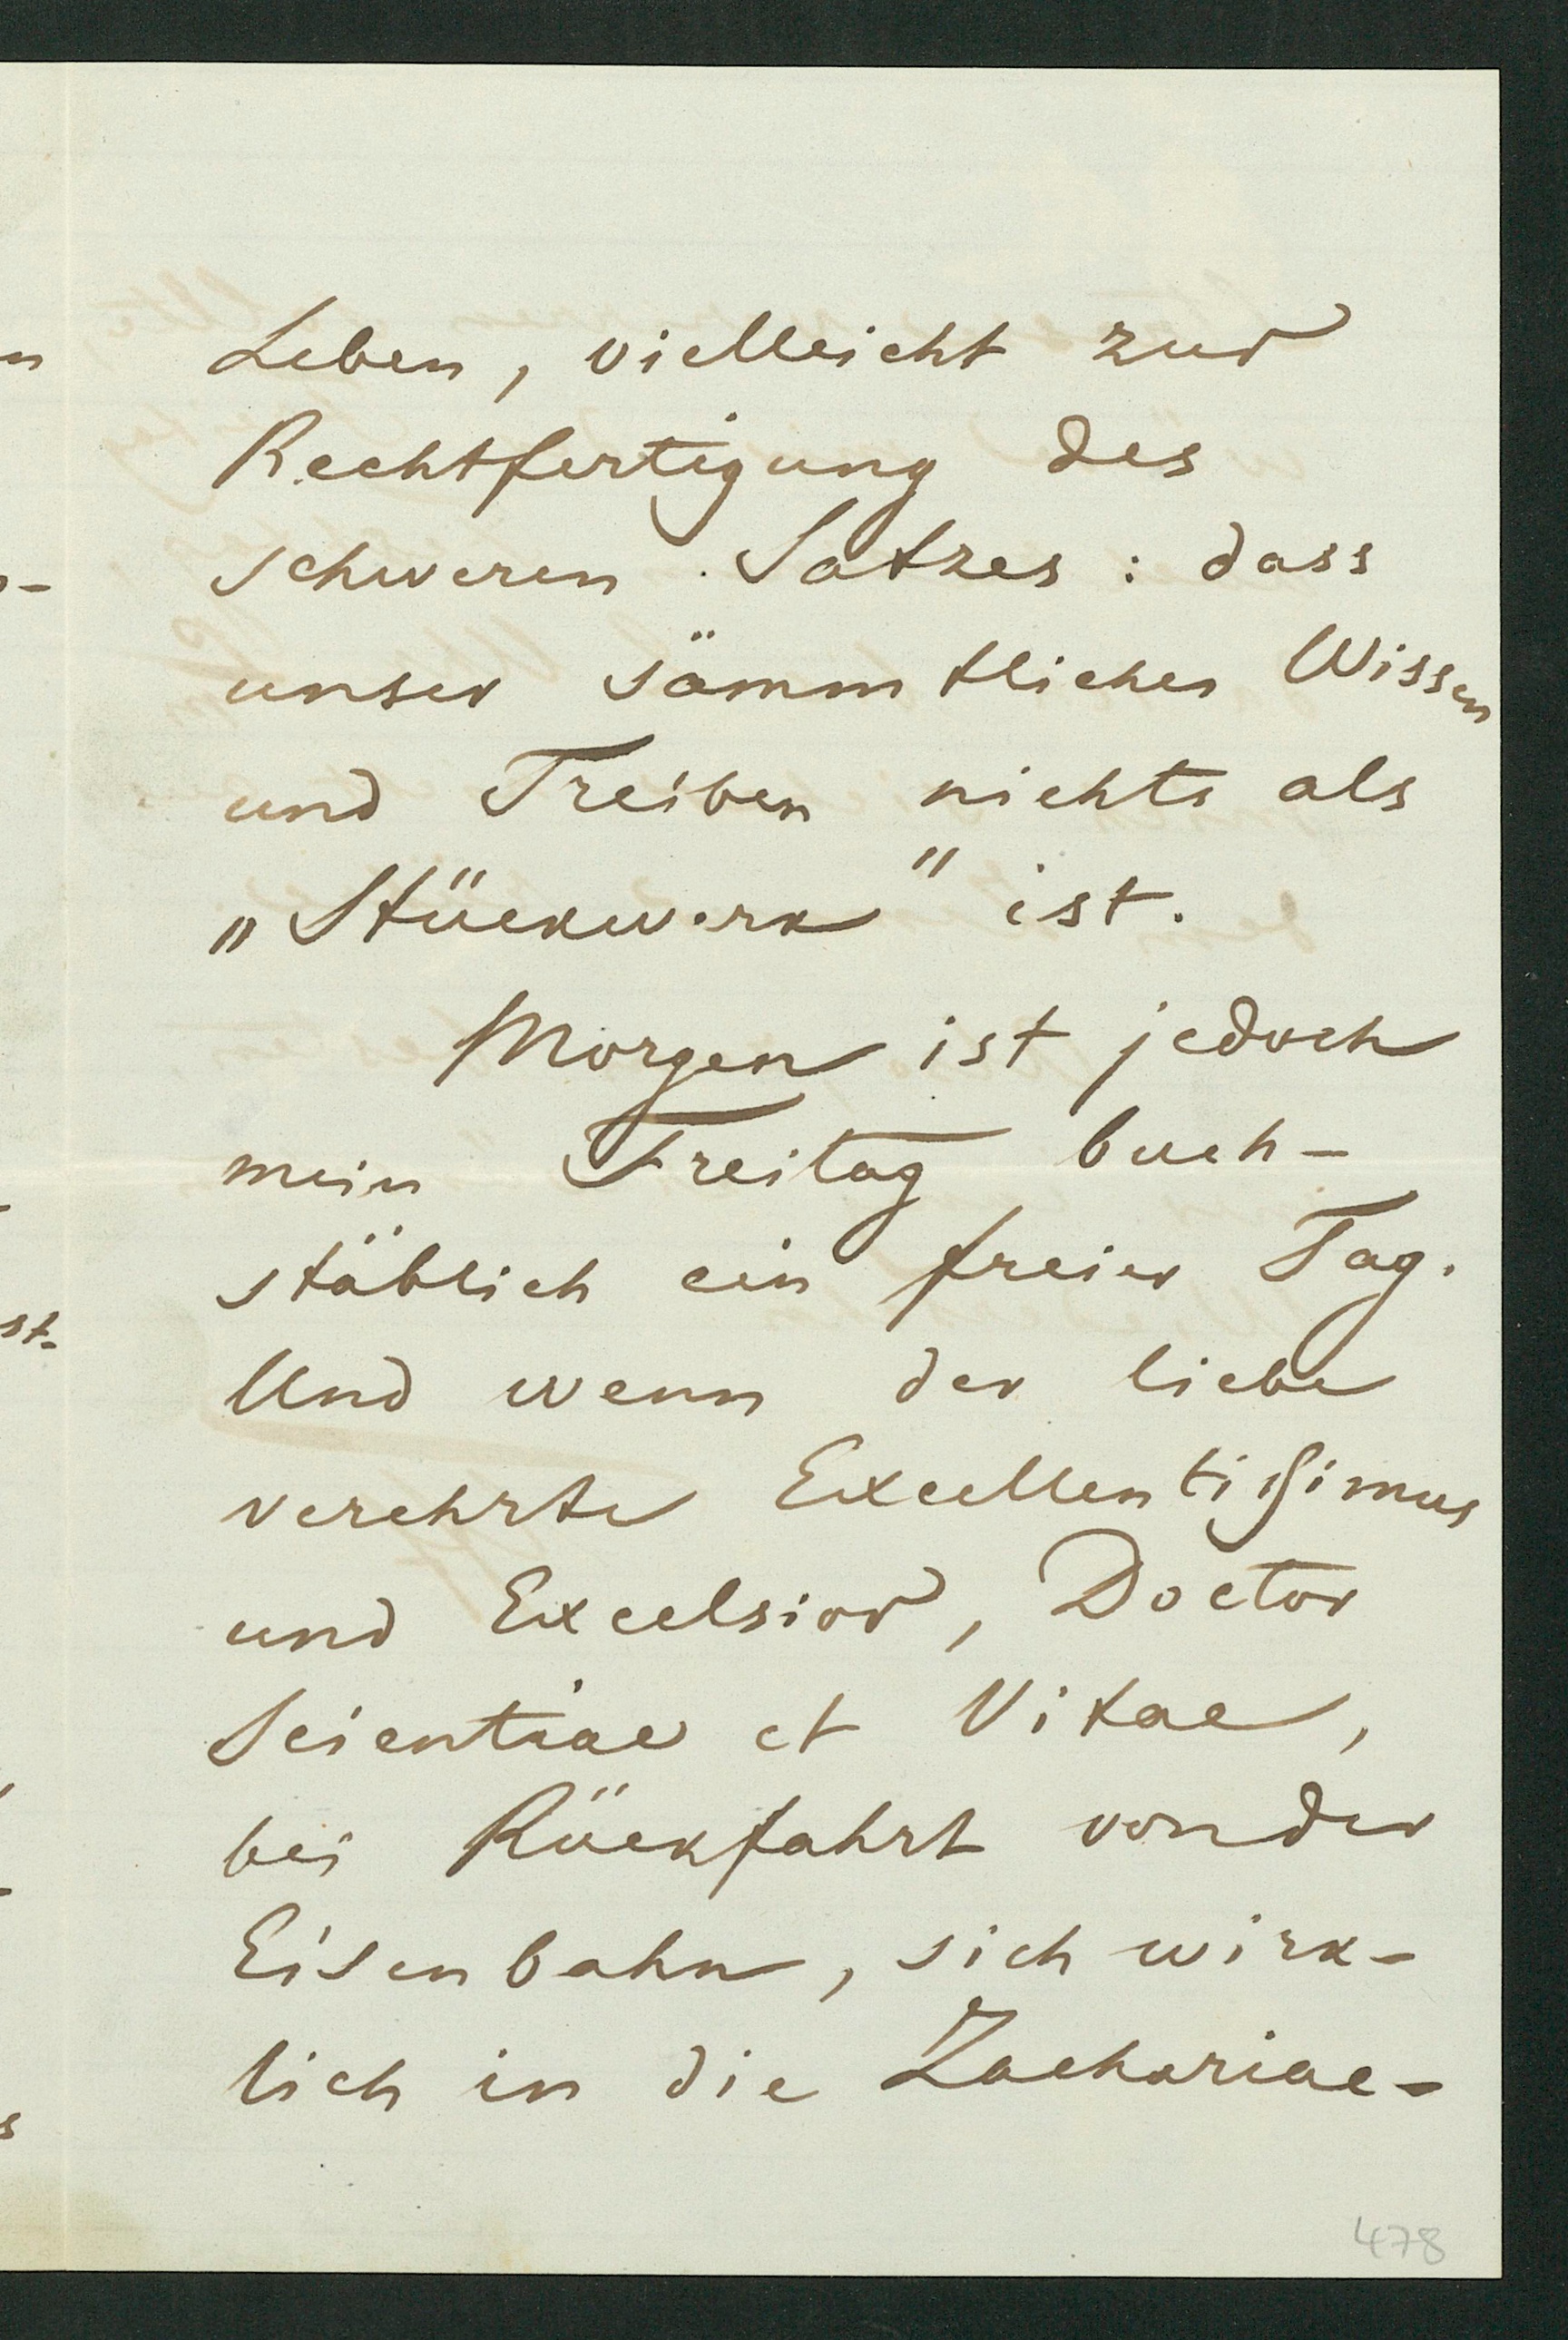 Leben, vielleicht zur
Rechtfertigung des
schweren Satzes : dass
unser sämmtliches Wissen
und Treiben nichts als
„Stückwerk" ist.
Morgen ist jedoch
mein Freitag buch-
stäblich ein freier Tag.
Und wenn der liebe
verehrte Excellentißimus
und Excelsior, Doctor
Scientiae et Vitae,
bei Rückfahrt von der
Eisenbahn, sich wirk-
lich in die Zachariae-
478